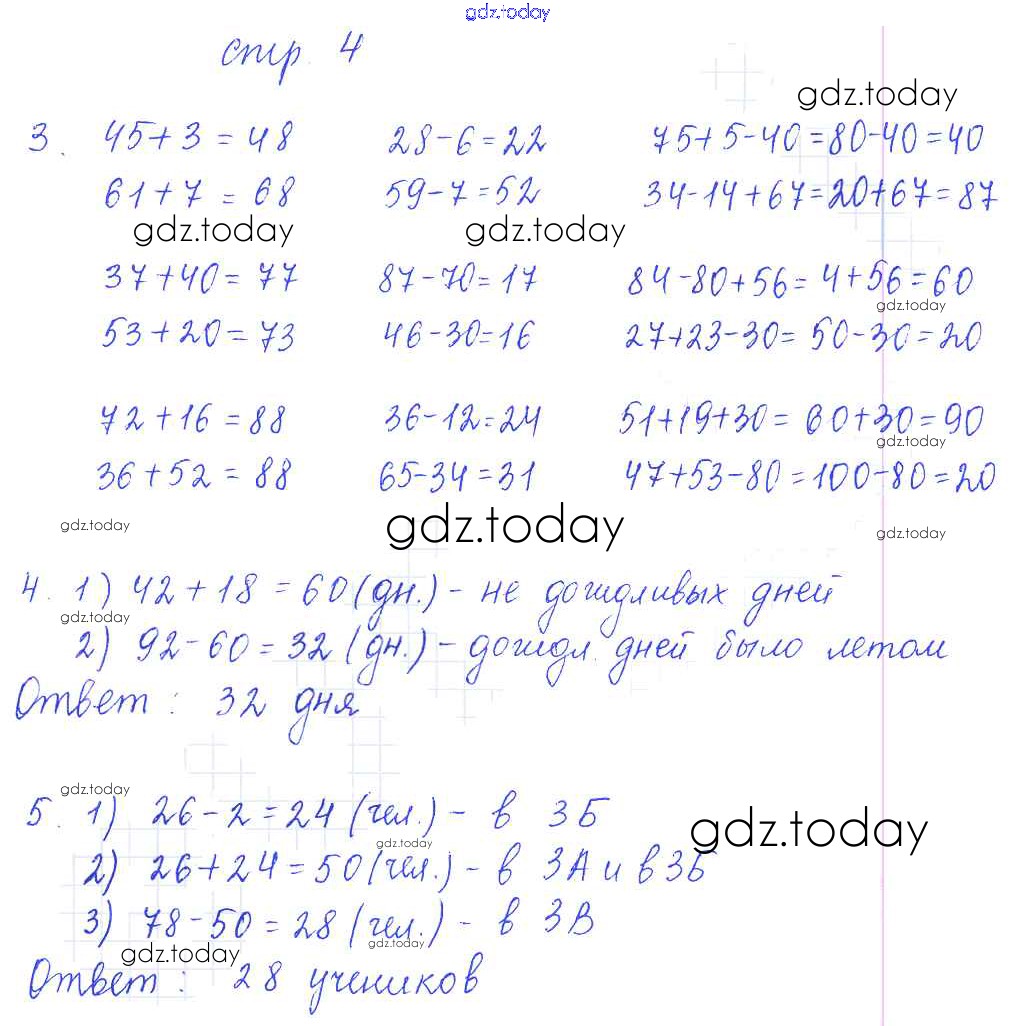 gdz.today
стр. 4
gdz.today
3. 45+3=48 28-6=22 75+5-40=80-40=40
61+7=68 59-7=52 34-14+67=20+67=87
gdz.today gdz.today
37+40=77 87-70=17 84-80+56=4+56=60
gdz.today
53+20=73 46-30=16 27+23-30=50-30=20
72+16=88 36-12=24 51+19+30=60+30=90
gdz.today
36+52=88 65-34=31 47+53-80=100-80=20
gdz.today gdz.today gdz.today
4. 1) 42+18=60(дн.)- не дождливых дней
gdz.today
2) 92-60=32(дн.)-дождл. дней было летом
Ответ: 32 дня
gdz.today
5. 1) 26-2=24(чел.)- в 3Б
gdz.today gdz.today
2) 26+24=50(чел.)- в 3А и в 3Б
3) 78-50=28(чел.)- в 3В
gdz.today gdz.today
Ответ: 28 учеников